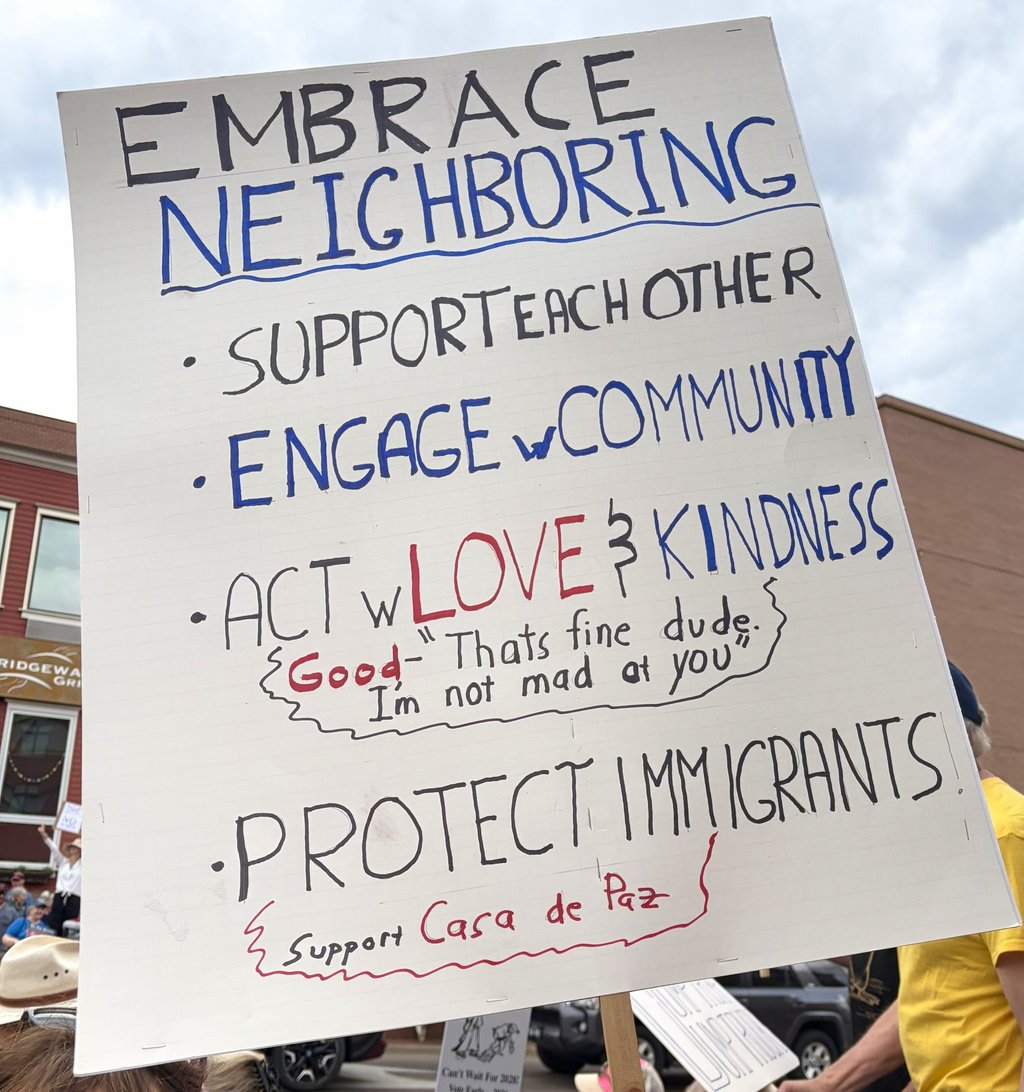 EMBRACE
NEIGHBORING
• SUPPORT EACH OTHER
• ENGAGE w COMMUNITY
• ACT w LOVE & KINDNESS
Good - "Thats fine dude.
I'm not mad at you"
• PROTECT IMMIGRANTS.
Support Casa de Paz
Can't Wait For 2028!